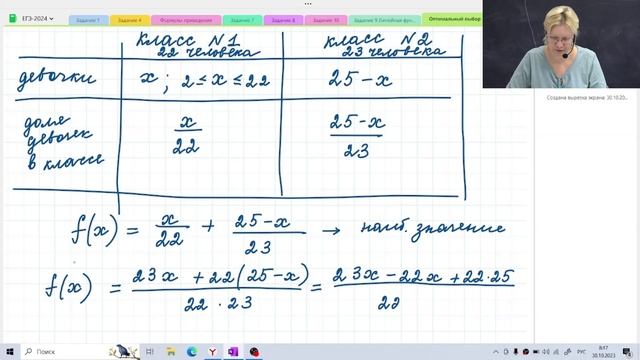 ЕГЭ-2024
Задание 1
Задание 4
Формулы приведения
Задание 7
Задание 8
Задание 10
Задание 9 Линейные фун...
Оптимальный выбор
Создана вырезка экрана: 30.10.20...
Класс N1 Класс N2
22 человека 23 человека
девочки x ; 2≤x≤22 25-x
доля девочек в классе x/22 (25-x)/23
f(x) = x/22 + (25-x)/23 → наиб. значение
f(x) = (23x + 22(25-x))/(22·23) = (23x - 22x + 22·25)/22
Поиск
РУС
8:47
30.10.2023